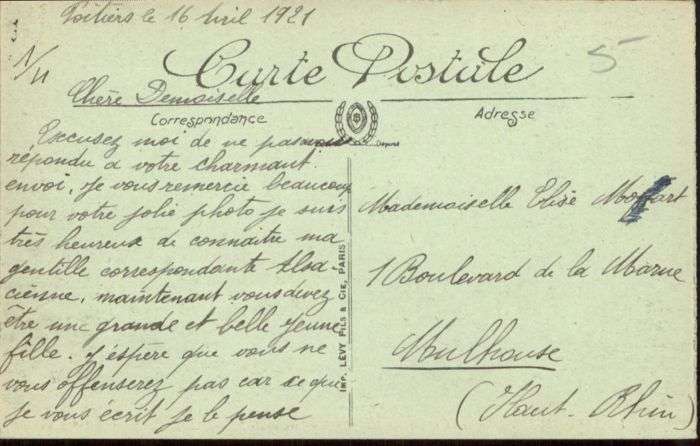 Poitiers le 16 Avril 1921
1/11
5
Carte Postale
Chère Demoiselle
Correspondance
Adresse
Déposé
Excusez moi de ne pas avoir
répondu a votre charmant
envoi, je vous remercie beaucoup
pour votre jolie photo je suis
très heureux de connaitre ma
gentille correspondante Alsa-
cienne, maintenant vous devez
être une grande et belle jeune
fille. J'espère que vous ne
vous offenserez pas car ce que
je vous écrit je le pense
IMP. LÉVY FILS & CIE, PARIS
Mademoiselle Elise
1 Boulevard de la Marne
Mulhouse
(Haut-Rhin)